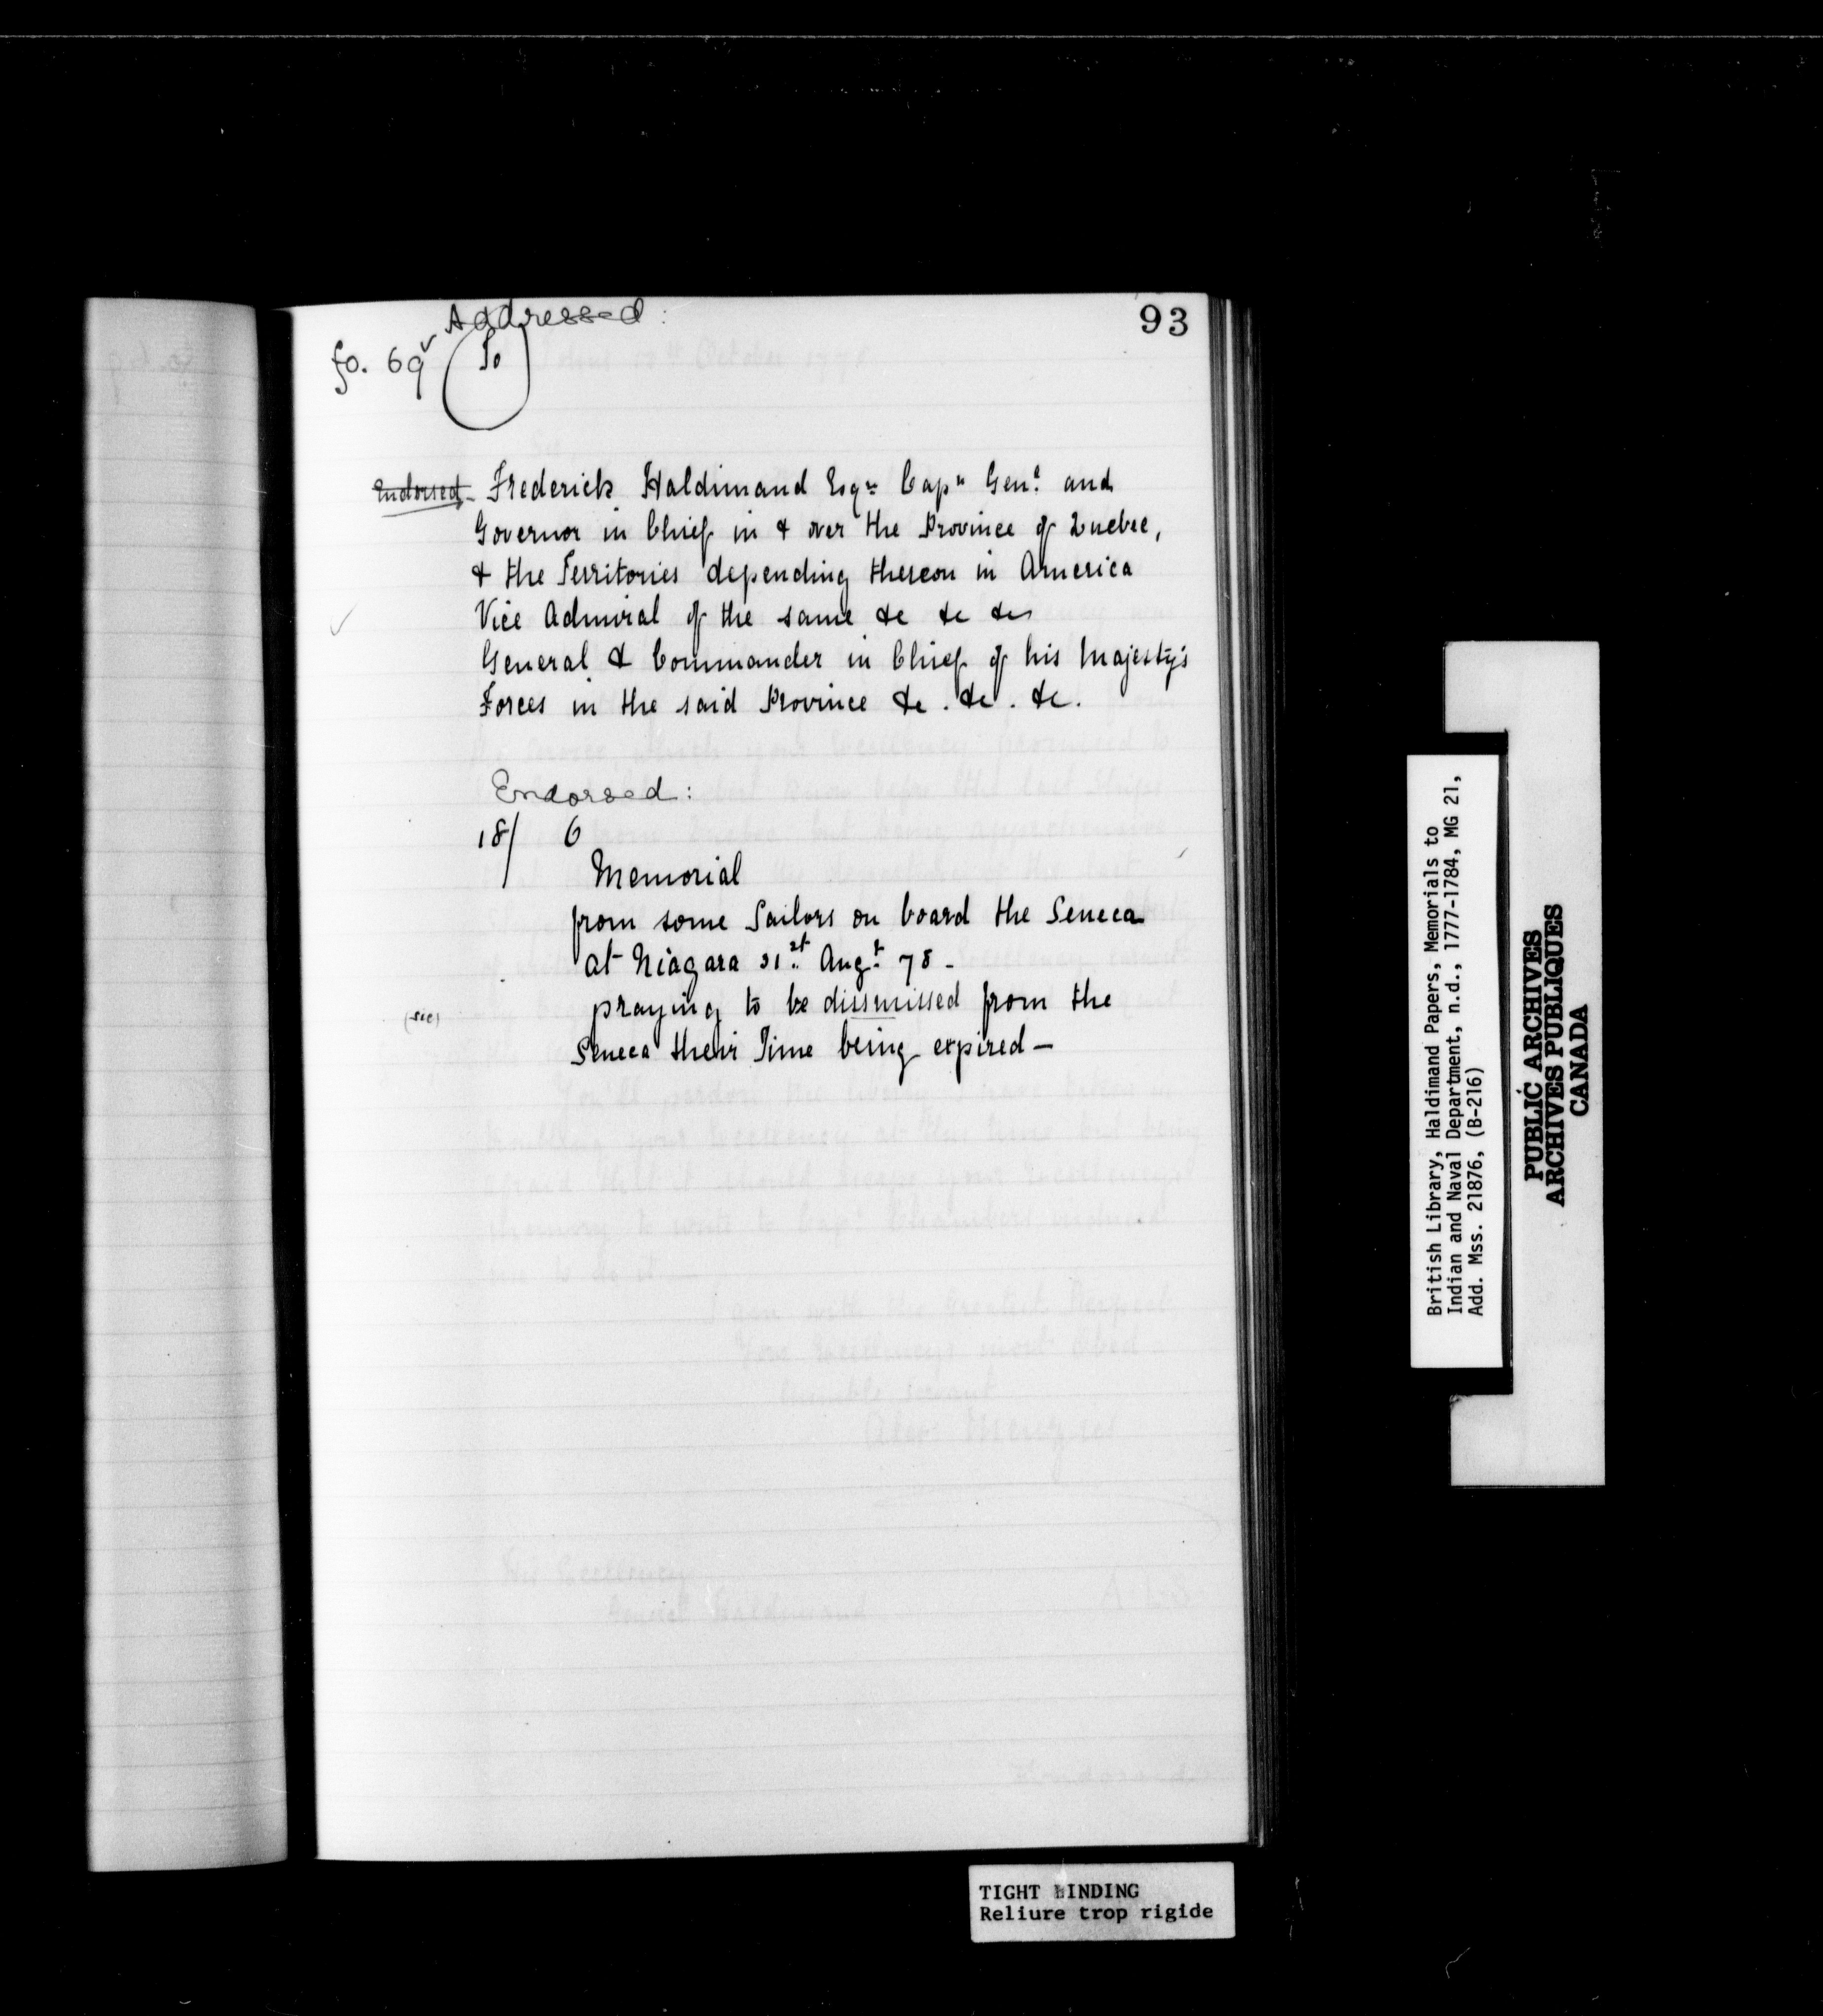 93
Addressed:
fo. 69v To
Endorsed - Frederick Haldimand Esqre Capn Genl and
Governor in Chief in & over the Province of Quebec,
& the Territories depending thereon in America
Vice Admiral of the same &c &c &c
General & Commander in Chief of his Majesty's
Forces in the said Province &c . &c . &c.
Endorsed:
18/ 6
Memorial
from some Sailors on board the Seneca
at Niagara 31st Augt 78 -
(sic) praying to be dissmissed from the
Seneca their Time being expired —
British Library, Haldimand Papers, Memorials to
Indian and Naval Department, n.d., 1777-1784, MG 21,
Add. Mss. 21876, (B-216)
PUBLIC ARCHIVES
ARCHIVES PUBLIQUES
CANADA
TIGHT BINDING
Reliure trop rigide